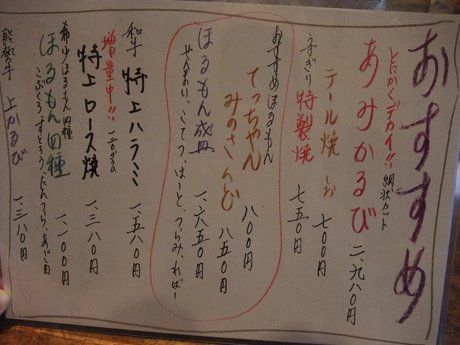 おすすめ
とにかくデカイ!! 網状カット
あみかるび 二、九八〇円
テール焼 しお 七〇〇円
うすぎり 特製焼 七五〇円
おすすめほるもん
てっちゃん 八〇〇円
みのさんど 八五〇円
ほるもん盛皿 一、六五〇円
せんまい、こてつ、はーと、つらみ、ればー
和牛 特上ハラミ 一、五八〇円
増量中!! 一二〇グラム
特上ロース焼 一、三八〇円
希少ほるもん四種
ほるもん四種 一、一〇〇円
能勢牛 上かるび 一、三八〇円